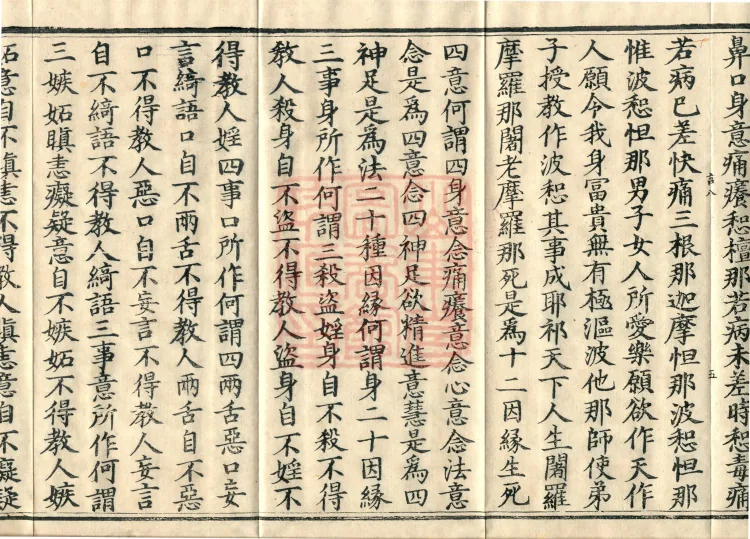 鼻口身意痛癢愁檀那若病未差時愁毒痛
若病已差快痛三根那迦摩怛那波愁怛那
惟波愁怛那男子女人所愛樂願欲作天作
人願令我身冨貴無有極漚波他那師使弟
子授教作波愁其事成耶祁天下人生闍羅
摩羅那闍老摩羅那死是為十二因緣生死
四意何謂四身意念痛癢意念心意念法意
念是為四意念四神足欲精進意慧是為四
神足是為法二十種因緣何謂身二十因緣
三事身所作何謂三殺盜婬身自不殺不得
教人殺身自不盜不得教人盜身自不婬不
得教人婬四事口所作何謂四兩舌惡口妄
言綺語口自不兩舌不得教人兩舌自不惡
口不得教人惡口自不妄言不得教人妄言
自不綺語不得教人綺語三事意所作何謂
三嫉妬瞋恚癡疑意自不嫉妬不得教人嫉
妬意自不瞋恚不得教人瞋恚意自不癡疑
五